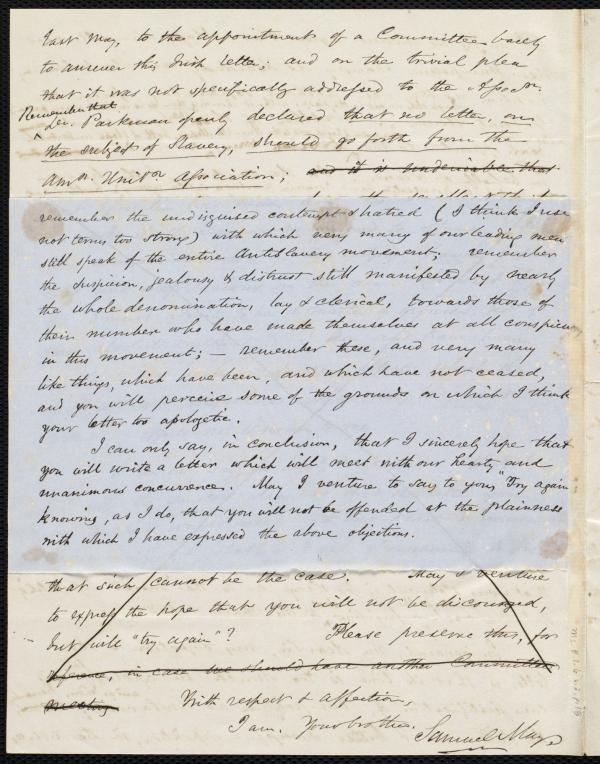 last May, to the appointment of a Committee barely
to answer this Irish letter; and on the trivial plea
that it was not specifically addressed to the Assocn.
Remember that
Dr. Parkman openly declared that no letter, on
the subject of Slavery, should go forth from the
Amn. Unitn. Association; and it is undeniable that
remember the undisguised contempt & hatred (I think I use
not terms too strong) with which very many of our leading men
still speak of the entire Antislavery movement; remember
the suspicion, jealousy & distrust still manifested by nearly
the whole denomination, lay & clerical, towards those of
their number who have made themselves at all conspicuous
in this movement; — remember these, and very many
like things, which have been, and which have not ceased,
and you will perceive some of the grounds on which I think
your letter too apologetic.
I can only say, in conclusion, that I sincerely hope that
you will write a letter which will meet with our hearty and
unanimous concurrence. May I venture to say to you, "Try again"
knowing, as I do, that you will not be offended at the plainness
with which I have expressed the above objections.
that such cannot be the case. May I venture
to express the hope that you will not be discouraged,
but will "try again"? Please preserve this, for
reference, in case we should have another Committee
meeting
With respect & affection,
I am. Your brother. Samuel May,